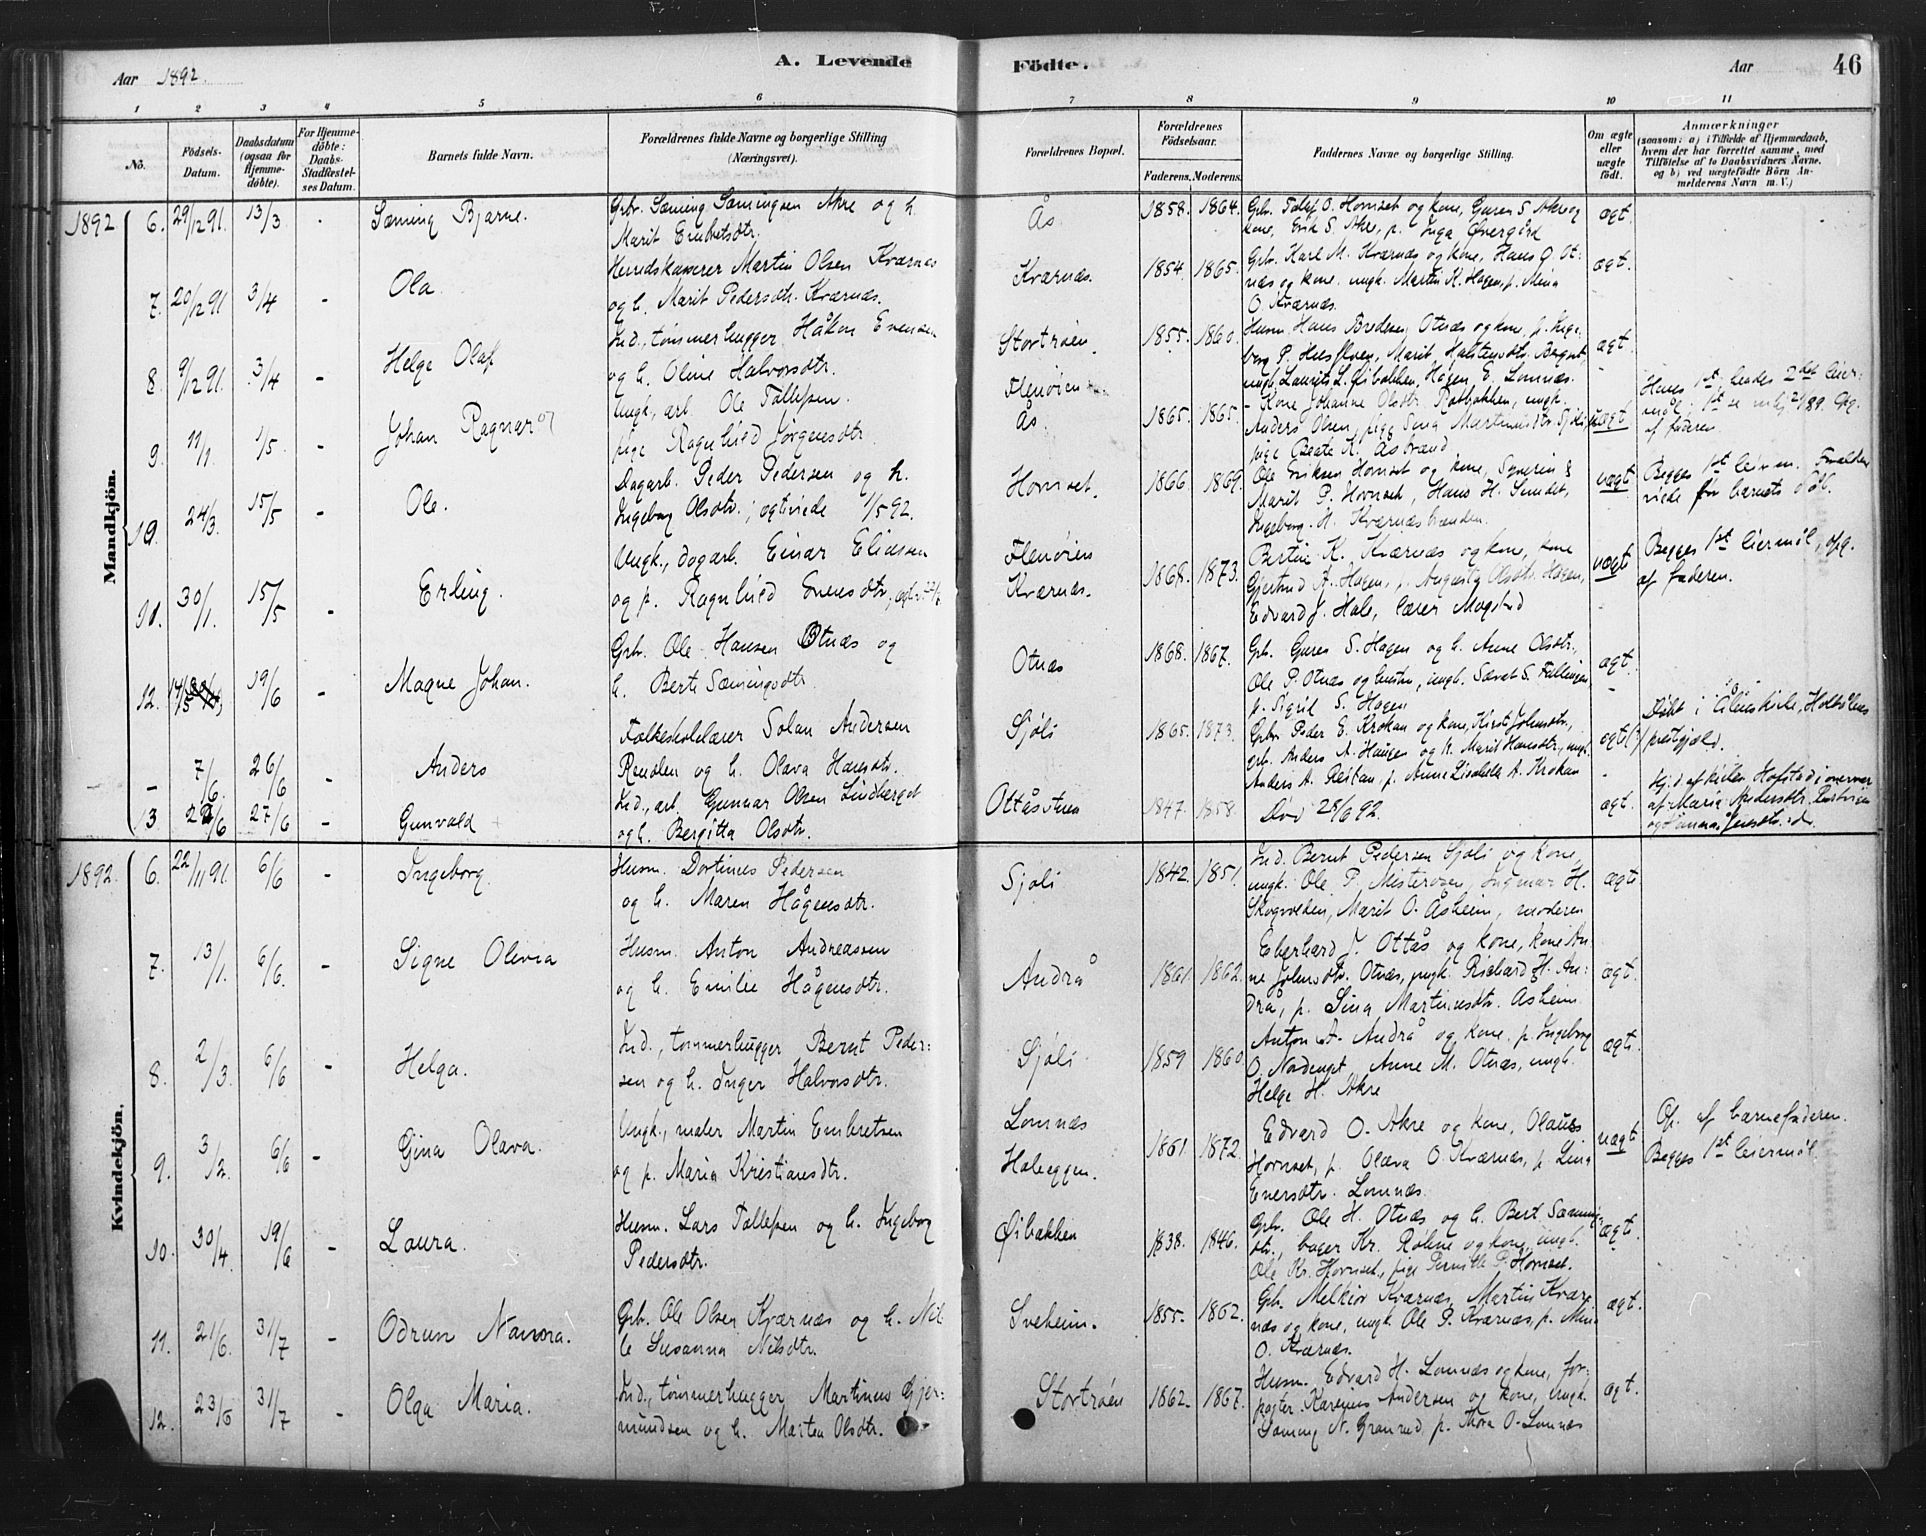 Aar 1892.
A. Levende
Födte.
Aar
46
1 2 3 4 5 6 7 8 9 10 11
No.
Födsels-Datum.
Daabsdatum (ogsaa for Hjemme-döbte).
For Hjemme-döbte: Daabs-Stadfæstel-ses Datum.
Barnets fulde Navn.
Forældrenes fulde Navne og borgerlige Stilling (Næringsvei).
Forældrenes Bopæl.
Forældrenes Födselsaar.
Faderens. Moderens.
Faddernes Navne og borgerlige Stilling.
Om ægte eller uægte födt.
Anmærkninger
(saasom: a) i Tilfælde af Hjemmedaab, hvem der har forrettet samme, med Tilföielse af to Daabsvidners Navne, og b) ved uægtefödte Börn An-melderens Navn m. V.)
Mandkjön.
1892 6. 29/12 91. 13/3 - Sæming Bjarne.
Gbr. Sæming Sæmingsen Akre og h.
Marit Embretsdtr.
Ås 1858. 1864.
Gbr. O. Hornset og kone, Guren S. Akre og
kone, Erik S. Akre, p. Inga Øvergård
ægt.
7. 20/12 91 3/4 - Ola
Herredskasserer Martin Olsen Kværnes
og h. Marit Pedersdtr. Kværnæs.
Kværnæs. 1854. 1865.
Gbr. Karl M. Kværnæs og kone, Hans O. Ot-
næs og kone, ungk. Martin K. Hagen, p. Mina
O. Kværnæs.
ægt.
8. 9/12 91. 3/4 - Helge Olaf
Ind., tømmerhugger Håkon Evensen
og h. Oline Halvorsdtr.
Stortrøen. 1855. 1860.
Husm. Hans Otnæs og kone, p. Inge-
borg P. Marit Halstensdtr.
ungk. Laurits L. Øibakken, Hågen E. Lomnæs.
ægt.
9. 11/1 1/5 - Johan Ragnar
Ungk., arb. Ole Tollefsen.
pige Ragnhild Jørgensdtr.
Flenøien
Ås. 1865. 1865.
- Kone Johanne Olsdtr. ungk.
Anders Olsen, pige Sina Martinusdtr. Sjøli,
pige Beate K. Åsbrænd
uægt
Hans 1st, hendes 2det leier-
mål. Opg.
af faderen.
10. 24/3 15/5 - Ole.
Dagarb. Peder Pedersen og h.
Ingeborg Olsdtr.; ægteviede 1/5 92.
Hornset. 1866. 1869.
Ole Eriksen Hornset og kone, Syverin &
Marit P. Hornset, Hans H. Sundet,
Ingeborg H. Kværnæsbrænden.
uægt
Begges 1st leierm. Forældre
viede før barnets dåb.
11. 30/1. 15/5 - Erling.
Ungk., dagarb. Einar Eliassen
og p. Ragnhild Evensdtr.,
Flenøien
Kværnæs. 1868. 1873.
Bertin K. Kværnæs og kone, kone
Gjertrud A. Hagen, Augusta Olsdtr. Hagen,
Edvard J. Hole, lærer Mogstad
uægt
Begges 1st leiermål, opg.
af faderen.
12. 14/5 19/6 - Magne Johan.
Gbr. Ole Hansen Otnæs og
h. Berte Sæmingsdtr.
Otnæs 1868. 1867.
Gb. Guren S. Hagen og h. Anne Olsdtr.,
Ole P. Otnæs og hustru, ungk. S. Fallingen,
p. Sigrid S. Hagen
ægt.
- 7/6. 26/6 - Anders
Folkeskolelærer Solan Andersen
Rendlen og h. Olava Hansdtr.
Sjøli 1865. 1873.
Gbr. Peder E. Krokan og kone, Kirsti Johnsdtr.,
gb. Anders A. Haugen og h. Marit Hansdtr., ungk.
Anders A. Reitan, p. Anne Lisabeth A. Krokan
ægt
Døbt i Ålens kirke, Holtålens
prestgjæld.
13 27/6 - Gunvald
Ind., arb. Gunnar Olsen Lindberget
og h. Bergitta Olsdtr.
Ottåsstuen 1847. 1858.
Død 28/6 92.
ægt.
Hj.d. af Hofstad i overvær
af Maria Andersdtr.
Kvindekjön.
1892. 6. 22/11 91. 6/6 - Ingeborg
Husm. Dortinus Pedersen
og h. Maren Hågensdtr.
Sjøli 1842. 1851.
Ind. Bernt Pedersen Sjøli og kone,
ungk. Ole P. Misterosen, Ingvar H.
Skogvolden, Marit O. Åsheim, moderen
ægt.
7. 13/1. 6/6. - Signe Olivia
Husm. Anton Andreassen
og h. Emilie Hågensdtr.
Andrå 1861. 1862.
Eberhard J. Ottås og kone, kone An-
ne Johnsdtr. Otnæs, ungk. Richard H. An-
drå, p. Sina Martinusdtr. Åsheim
ægt.
8. 2/3. 6/6 - Helga.
Ind., tømmerhugger Bernt Peder-
sen og h. Inger Halvorsdtr.
Sjøli 1859 1860
Anton A. Andrå og kone, p. Ingeborg
O. Nordenget, Anne M. Otnæs, ungk.
Helge H. Akre
ægt.
9. 3/2. 6/6 - Gina Olava.
Ungk., maler Martin Embretsen
og p. Maria Kristiansdtr.
Lomnæs
Haheggen. 1861. 1872.
Edvard O. Akre og kone, Olaus
Hornset, p. Olava O. Kværnæs, p. Lina
Enersdtr. Lomnæs.
uægt
Op. af barnefaderen.
Begges 1st leiermål
10. 30/4 19/6 - Laura.
Husm. Lars Tollefsen og h. Ingeborg
Pedersdtr.
Øibakken 1838. 1846.
Gbr. Ole H. Otnæs og h. Bert Sæmings-
dtr., bager Kr. Røhne og kone, ungk.
Ole Kr. Hornset, pige Pernille P. Hornset.
ægt.
11. 21/6. 31/7 - Odrun Nanna.
Gbr. Ole Olsen Kværnæs og h. Nil-
le Susanna Nilsdtr.
Sveheim. 1855. 1862.
Gb. Melkior Kværnæs, Martin Kvær-
næs og kone, ungk. Ole P. Kværnæs, p. Mina
O. Kværnæs.
ægt.
12. 23/6 31/7 - Olga Maria.
Ind., tømmerhugger Martinus Gjer-
mundsen og h. Marten Olsdtr.
Stortrøen 1862. 1867.
Husm. Edvard H. Lomnæs og kone, for-
pagter Andersen og kone, ungk.
Sæming N. Granrud, p. Thora O. Lomnæs
ægt.